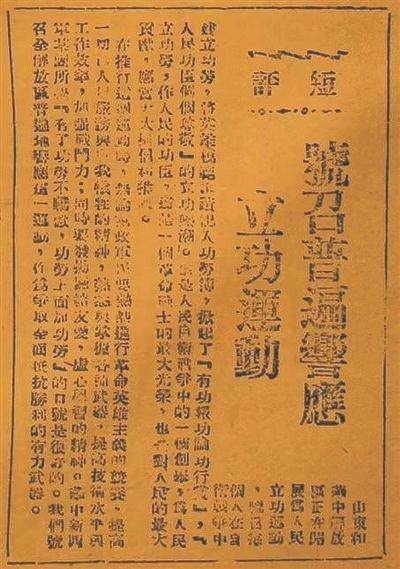 短評
號召普遍響應
立功運動
山東和
冀中解放
區正在開
展為人民
立功運動
,號召每
個人在自
衛戰爭中
建立功勞,將英雄模範事蹟記入功勞簿,掀起了『有功報功論功行賞』,『
人民功臣個個尊敬』的立功熱潮。這是人民自衛戰爭中的一個創舉,為人民
立功勞,作人民的功臣,這是一個革命戰士的最大光榮,也是對人民的最大
貢獻,應當大大提倡和推廣。
在推行這個運動時,無論黨政軍民要熱烈進行革命英雄主義的競賽,提高
一切為人民服務與自我犧牲的精神,熟悉與掌握各種武器,提高技術水平與
工作效率,加強戰鬥力;同時要發揚團結友愛,虛心學習的精神。蘇中新四
軍某團所提『有了功勞不驕傲,功勞上面加功勞』的口號是很好的。我們號
召全解放區普遍地響應這一運動,作為爭取全面抵抗勝利的有力武器。